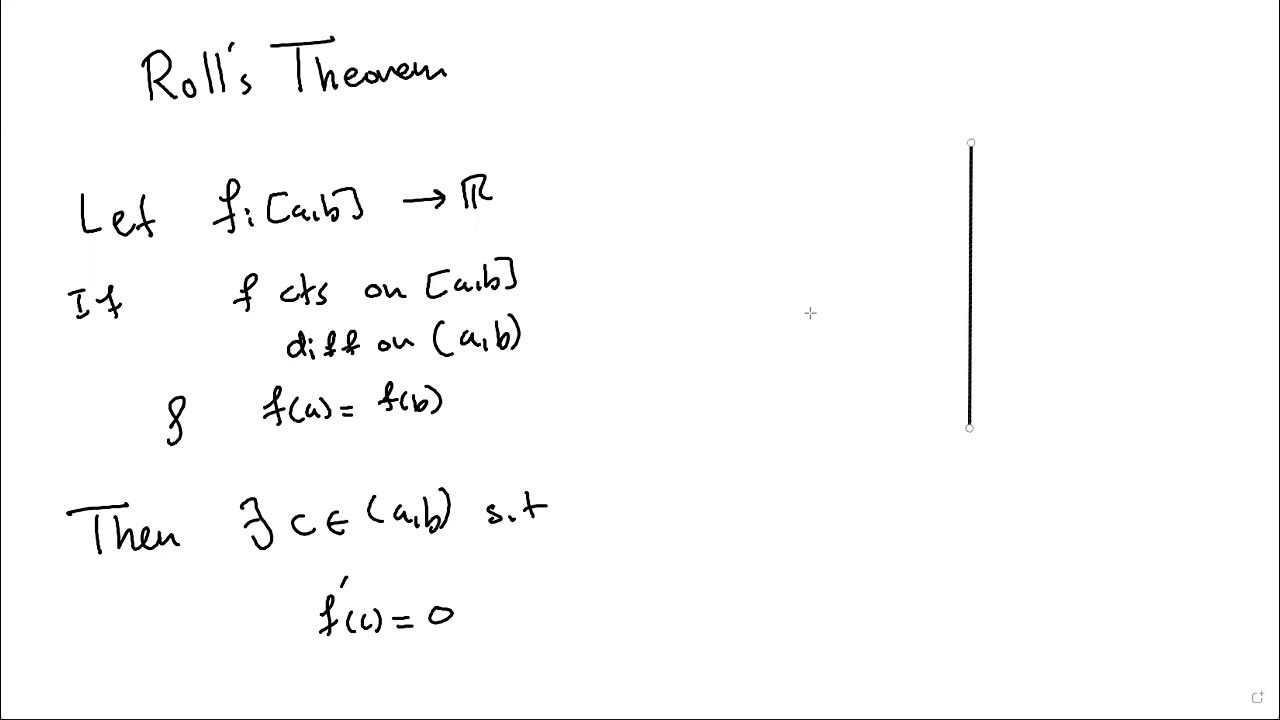 Roll's Theorem
Let f: [a,b] → ℝ
If f cts on [a,b]
diff on (a,b)
& f(a) = f(b)
Then ∃ c ∈ (a,b) s.t
f'(c) = 0